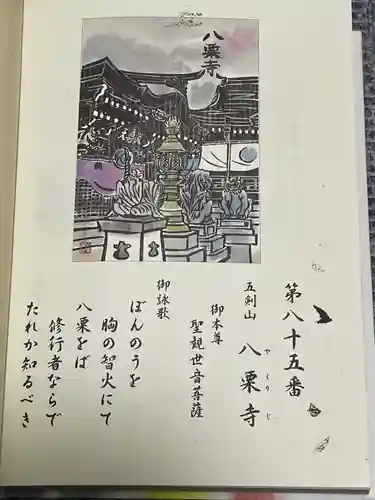 八栗寺
第八十五番
五剣山 八栗寺
やくりじ
御本尊
聖観世音菩薩
御詠歌
ぼんのうを
胸の智火にて
八栗をば
修行者ならで
たれか知るべき